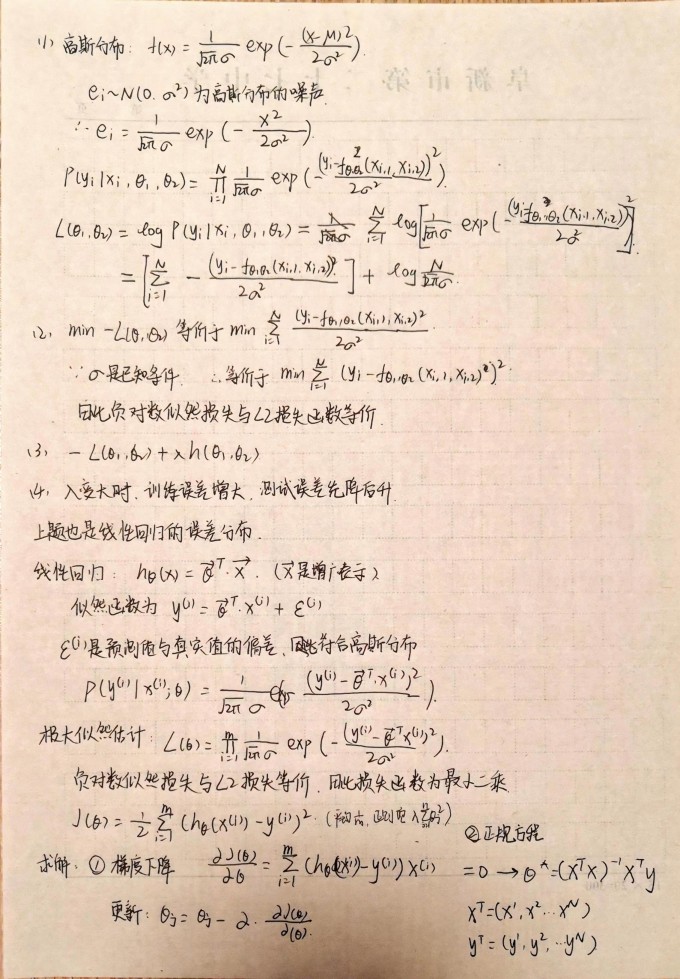 (1) 高斯分布: f(x) = 1/(√2π σ) exp(- (x-M)²/2σ²).
ei~N(0, σ²)为高斯分布的噪声
∴ ei = 1/(√2π σ) exp(- x²/2σ²).
P(yi|xi, θ1, θ2) = ∏_{i=1}^{N} 1/(√2π σ) exp(- (yi-fθ1,θ2(xi,1, xi,2))²/2σ²).
L(θ1,θ2) = log P(yi|xi, θ1, θ2) = Σ_{i=1}^{N} log[1/(√2π σ) exp(- (yi-fθ1,θ2(xi,1, xi,2))²/2σ²)].
= [Σ_{i=1}^{N} - (yi-fθ1θ2(xi,1, xi,2))²/2σ²] + log N/(√2π σ).
(2) min -L(θ1,θ2) 等价于 min Σ_{i=1}^{N} (yi-fθ1,θ2(xi,1, xi,2)²/2σ²
∵ σ是已知条件. ∴等价于 min Σ_{i=1}^{N} (yi-fθ1,θ2(xi,1, xi,2))².
因此负对数似然损失与L2损失函数等价.
(3) -L(θ1,θ2)+λh(θ1,θ2)
(4) 入变大时, 训练误差增大, 测试误差先降后升.
上题也是线性回归的误差分布.
线性回归: hθ(x) = θ^T·x. (x是增广表示)
似然函数为 y^(i) = θ^T·x^(i) + ε^(i)
ε^(i)是预测值与真实值的偏差, 因此符合高斯分布
P(y^(i)|x^(i);θ) = 1/(√2π σ) exp (y^(i)-θ^T·x^(i))²/2σ²).
极大似然估计: L(θ) = ∏_{i=1}^{m} 1/(√2π σ) exp(- (y^(i)-θ^T x^(i))²/2σ²).
负对数似然损失与L2损失等价, 因此损失函数为最小二乘
J(θ) = 1/2 Σ_{i=1}^{m} (hθ(x^(i))-y^(i))².
求解: ① 梯度下降 ∂J(θ)/∂θ = Σ_{i=1}^{m} (hθ(x^(i))-y^(i)) x^(i)
更新: θj = θj - α· ∂J(θ)/∂(θ).
② 正规方程
=0 → θ* = (X^T X)^-1 X^T y
X^T=(x¹, x² ... x^N)
y^T=(y¹, y², ... y^N)